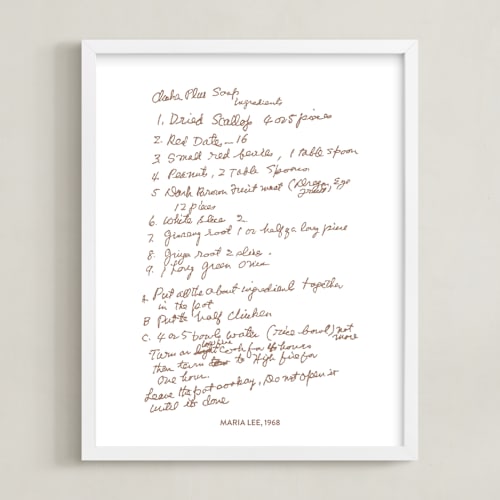 Plus Soup
Ingredients
1. Dried Scallops 4 or 5 pieces
2. Red Dates - 16
3. Small red beans, 1 table spoon
4. Peanuts, 2 Table Spoons
5 Dark Brown Fruit meat (Dragon Eye
12 pieces
6. White 2
7. Ginseng root 1 or half a long piece
8. root 2 slices.
9. 1 Long Green Onion
A. Put all the about ingredient together
in the pot
B Put half chicken
C. 4 or 5 bowls water (rice bowl) not
more
low fire
Turn on light Cook for 4 hours
then turn to High fire for
one hour.
Leave the pot , Do not open it
until it done
MARIA LEE, 1968